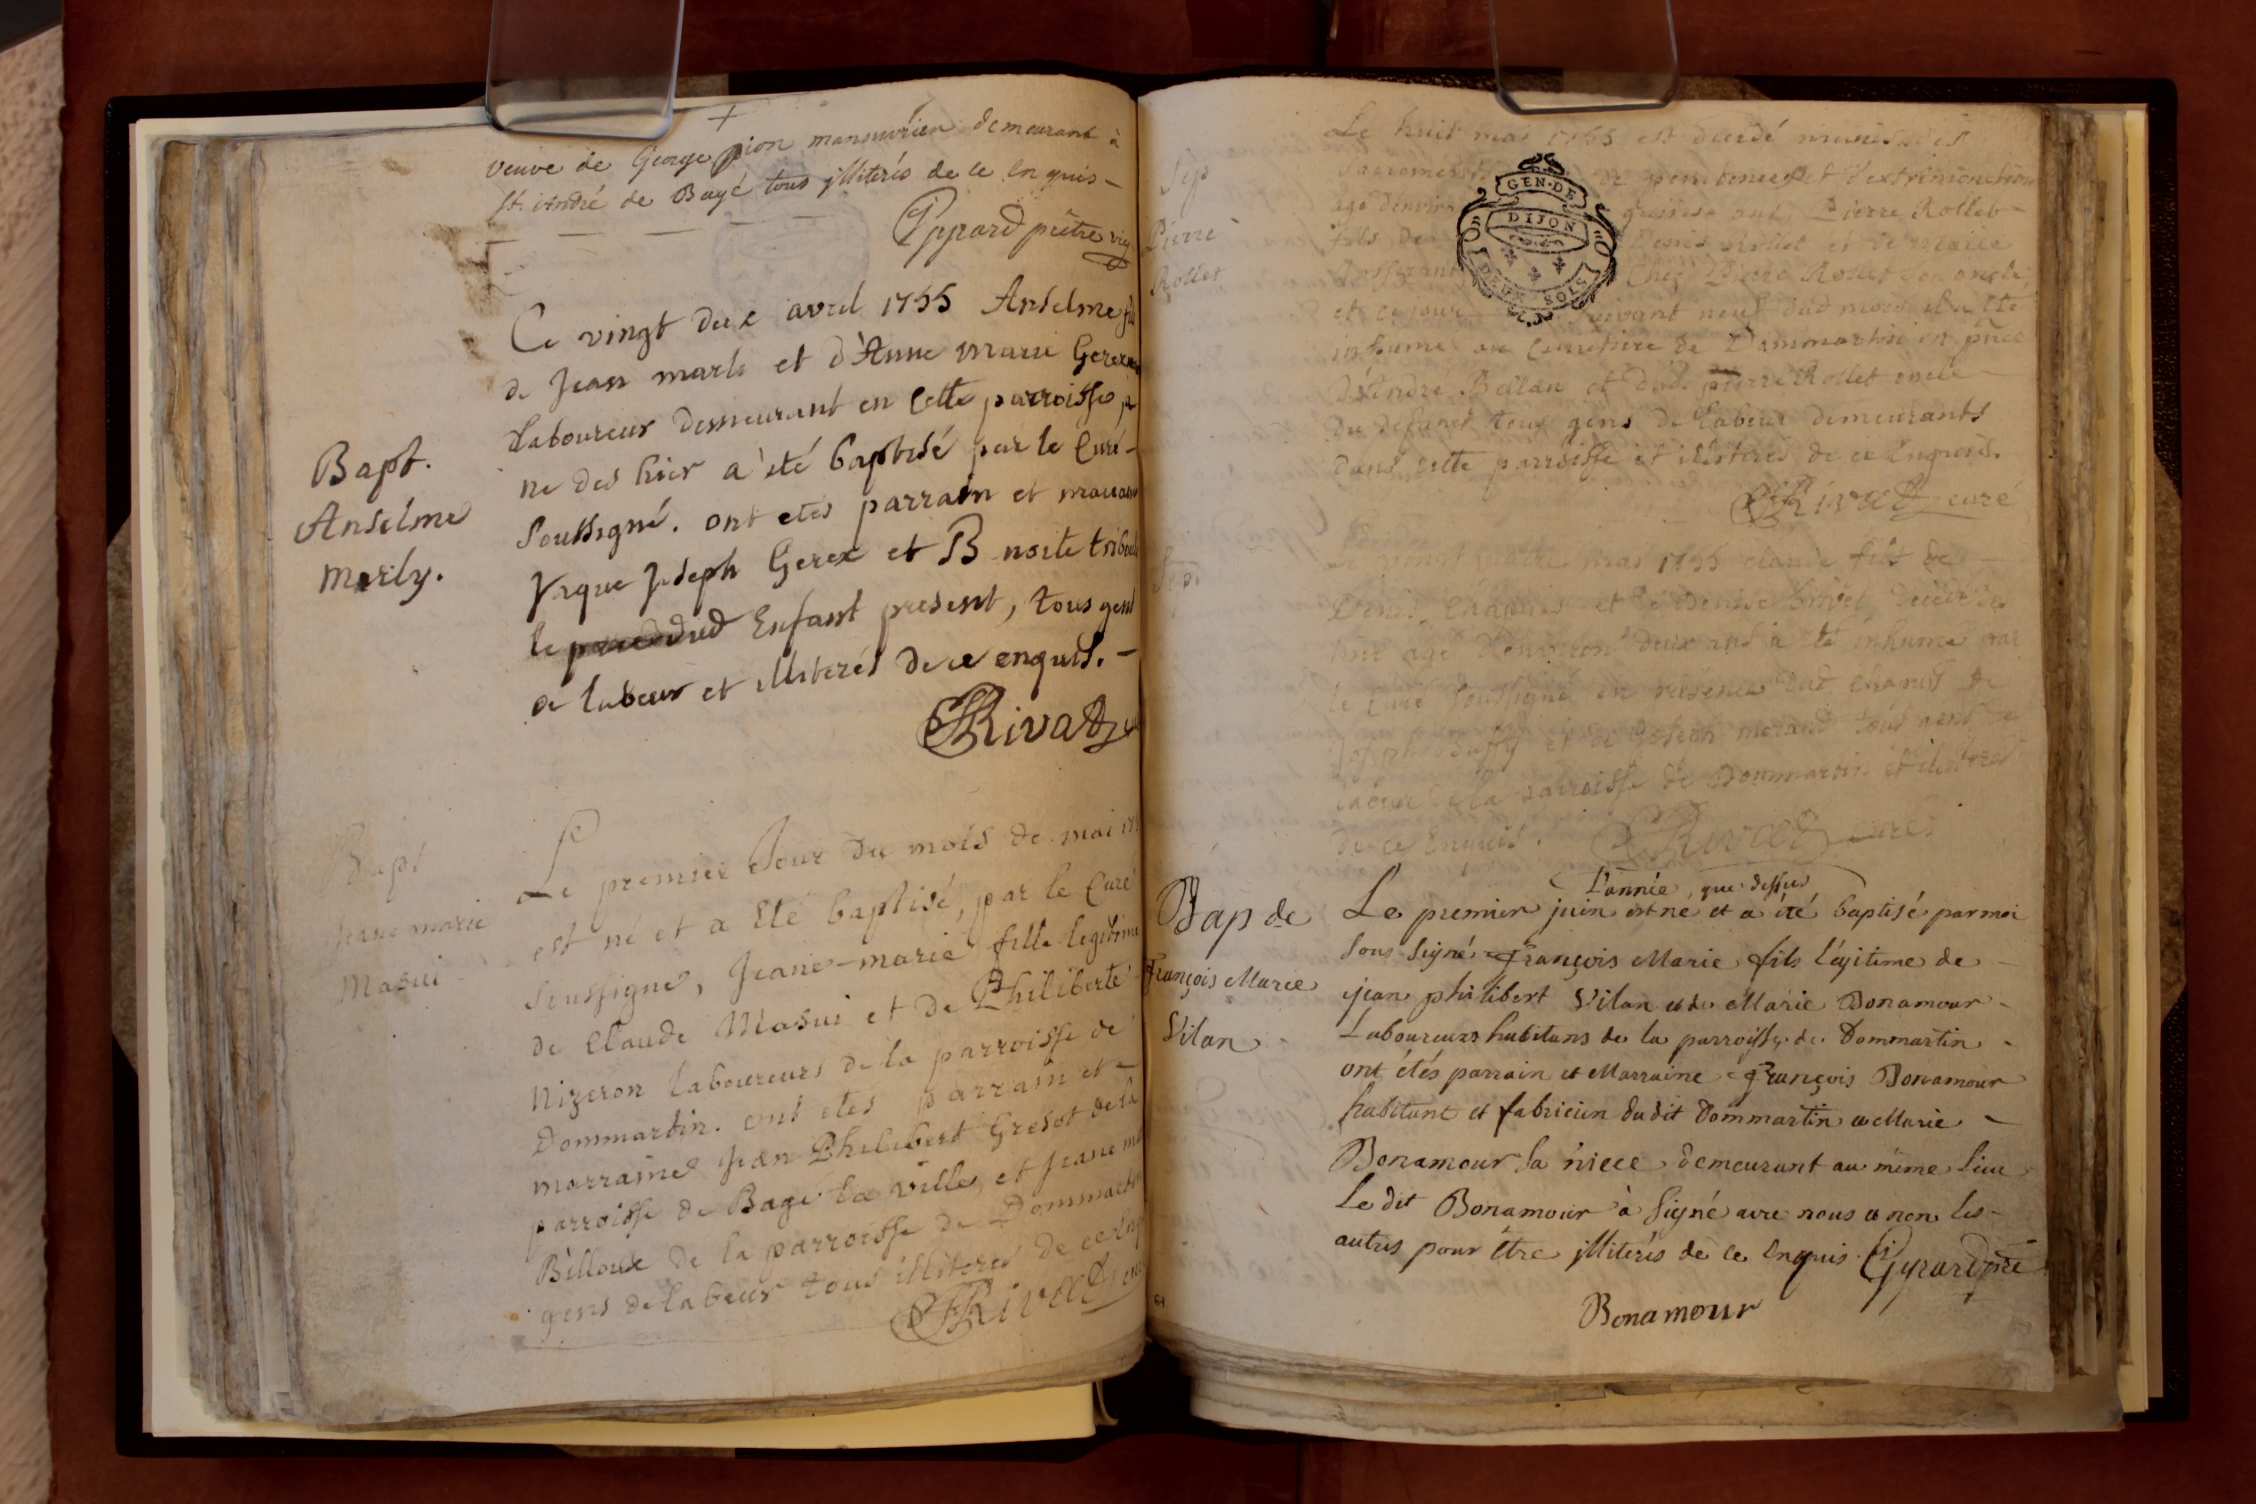 veuve de George pion manouvrier demeurant à
St. André de Bagé tous illiterés de ce enquis -
prêtre vic
Ce vingt deux avril 1755 Anselme fils
de Jean marli et d'Anne marie Gerex
laboureur demeurant en cette parroisse
né des hier a été baptisé par le Curé -
Soussigné. ont etés parrain et maraine
Jaque Joseph Gerex et B noite
le dud Enfant present, tous gens
de labeur et illiterés de ce enquis. -
Rivat
Bapt.
Anselme
Marly.
Le premier Jour du mois de mai
est né et a été baptisé, par le Curé
Soussigné, Jeane-marie fille legitime
de Claude Masui et de Philiberte
Nizeron laboureurs de la parroisse de
Dommartin. ont etés parrain et -
marraine Jean Philibert Gresot de la
parroisse de Bagé la ville, et Jeane
Billoux de la parroisse de Dommartin
gens de labeur tous illiterés de ce
Rivat
Bapt
Jeane marie
Masui
Sep
Pierre
Rollet
Le huit mai 1755 est decedé munis des
Sacremens de penitence et d'extremonction
agé d'environ quinze ans Pierre Rollet -
fils de Denis Rollet et de marie
chez Pierre Rollet son oncle
et ce jour suivant neuf dud mois il a été
inhumé au Cimetiere de Dommartin en pnce
d'André Bellan et dud. pierre Rollet oncle -
du defunt tous gens de labeur demeurants
dans cette parroisse et illiterés de ce Enquis.
Rivat curé
GEN. DE
DIJON
DEUX SOLS
Sep.
Le vingt quatre mai 1755 claude fils de -
Denis et de Denise decedé
agé d'environ deux ans a été inhumé par
le Curé Soussigné en presence dud
Joseph et de Joseph morand tous gens de
labeur de la parroisse de Dommartin et illiterés
de ce Enquis. Rivat curé
L'année que dessus
Bap de
François Marie
Vilan
Le premier juin est né et a été baptisé par moi
sous signé François Marie fils légitime de -
jean philibert Vilan et de Marie Bonamour -
Laboureurs habitans de la parroisse de Dommartin -
ont étés parrain et Marraine François Bonamour
habitant et fabricien dudit Dommartin et Marie -
Bonamour sa niece demeurant au même lieu
Le dit Bonamour à signé avec nous et non les -
autres pour être illiterés de ce enquis. Gyrard ptre
Bonamour